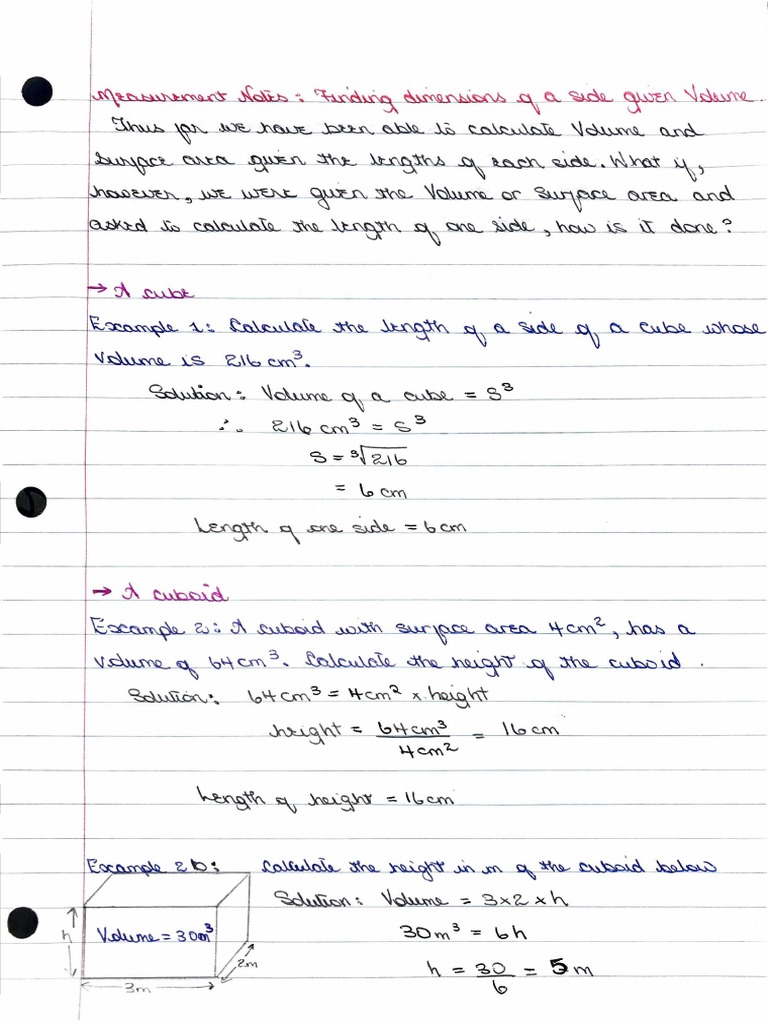 Measurement Notes: Finding dimensions of a side given Volume.
Thus far we have been able to calculate Volume and
surface area given the lengths of each side. What if,
however, we were given the Volume or Surface area and
asked to calculate the length of one side, how is it done?
→ A cube
Example 1: Calculate the length of a side of a cube whose
volume is 216 cm³.
Solution: Volume of a cube = S³
∴ 216 cm³ = S³
S = ³√216
= 6 cm
Length of one side = 6cm
→ A cuboid
Example 2: A cuboid with surface area 4cm², has a
volume of 64cm³. Calculate the height of the cuboid.
Solution: 64cm³ = 4cm² × height
height = 64cm³/4cm² = 16cm
Length of height = 16cm
Example 2b: Calculate the height in m of the cuboid below
Solution: Volume = 3×2×h
h Volume = 30m³ 30m³ = 6h
2m
h = 30/6 = 5 m
3m